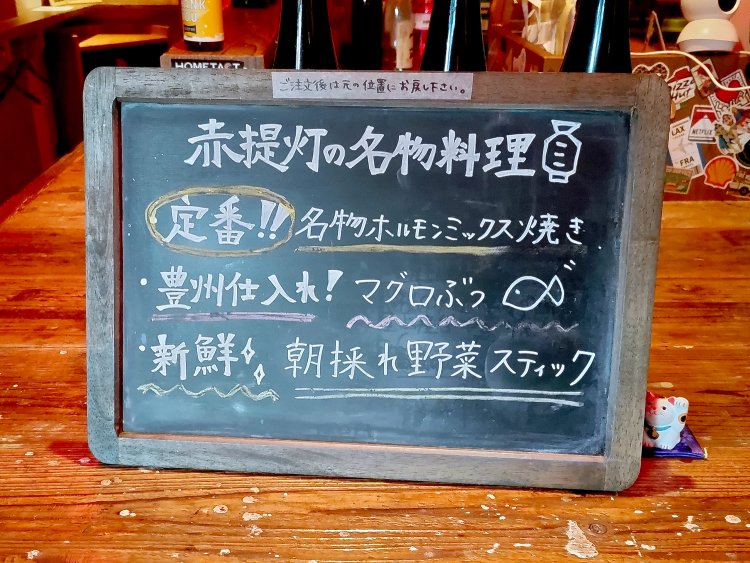 HOMETAST
ご注文後は元の位置にお戻し下さい。
赤提灯の名物料理
定番!! 名物ホルモンミックス焼き
・豊州仕入れ! マグロぶつ
新鮮 朝採れ野菜スティック
Pizza Hut
LAX
NETFLIX
FRA